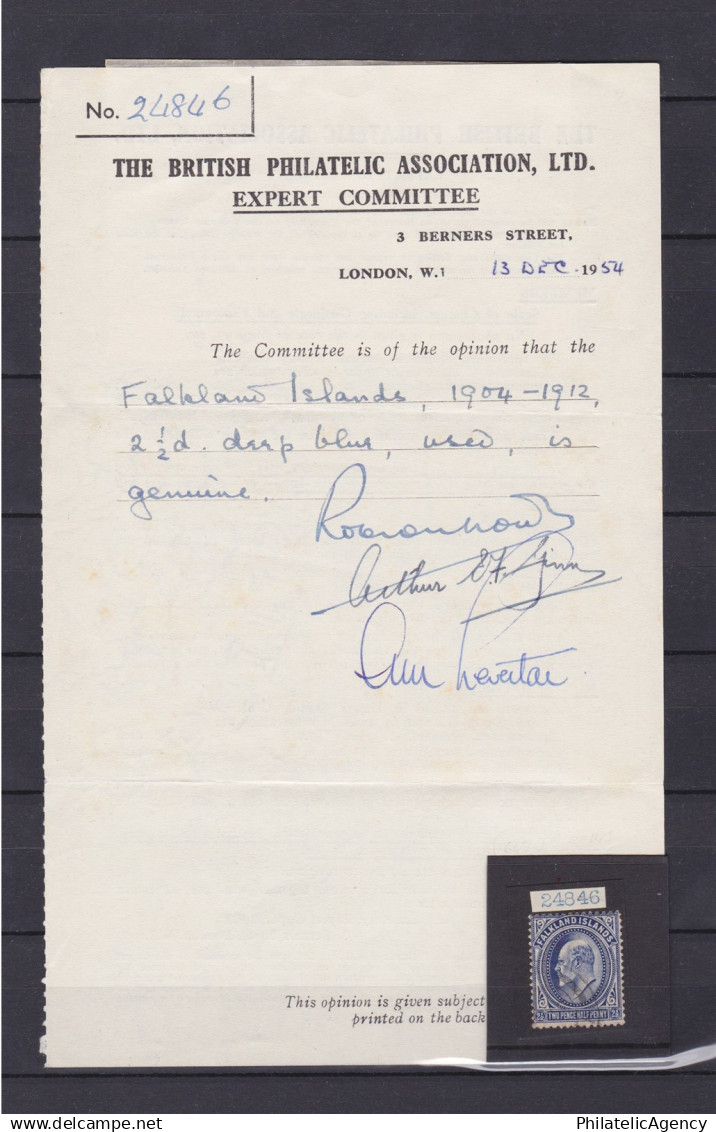 No. 24846
THE BRITISH PHILATELIC ASSOCIATION, LTD.
EXPERT COMMITTEE
3 BERNERS STREET,
LONDON, W.1 13 DEC. 1954
The Committee is of the opinion that the
Falkland Islands, 1904-1912,
2½d. deep blue, used, is
genuine.
Arthur
24846
FALKLAND ISLANDS
2½ TWO PENCE HALF-PENNY 2½
This opinion is given subject
printed on the back
delcampe.net
PhilatelicAgency